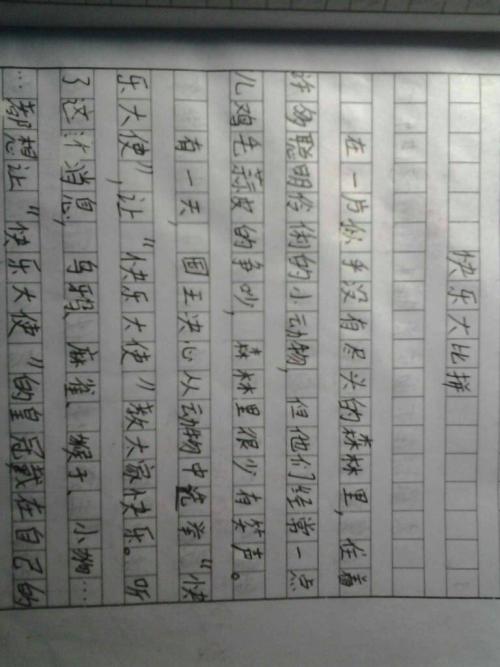 快乐大比拼
在一片似乎没有尽头的森林里，住着
许多聪明伶俐的小动物，但他们经常一点
儿鸡毛蒜皮的争吵，森林里很少有笑声。
有一天，国王决心从动物中选举“快
乐大使”，让“快乐大使”教大家快乐。听
了这个消息，乌鸦、麻雀、猴子、小狗…
…都想让“快乐大使”的皇冠戴在自己的